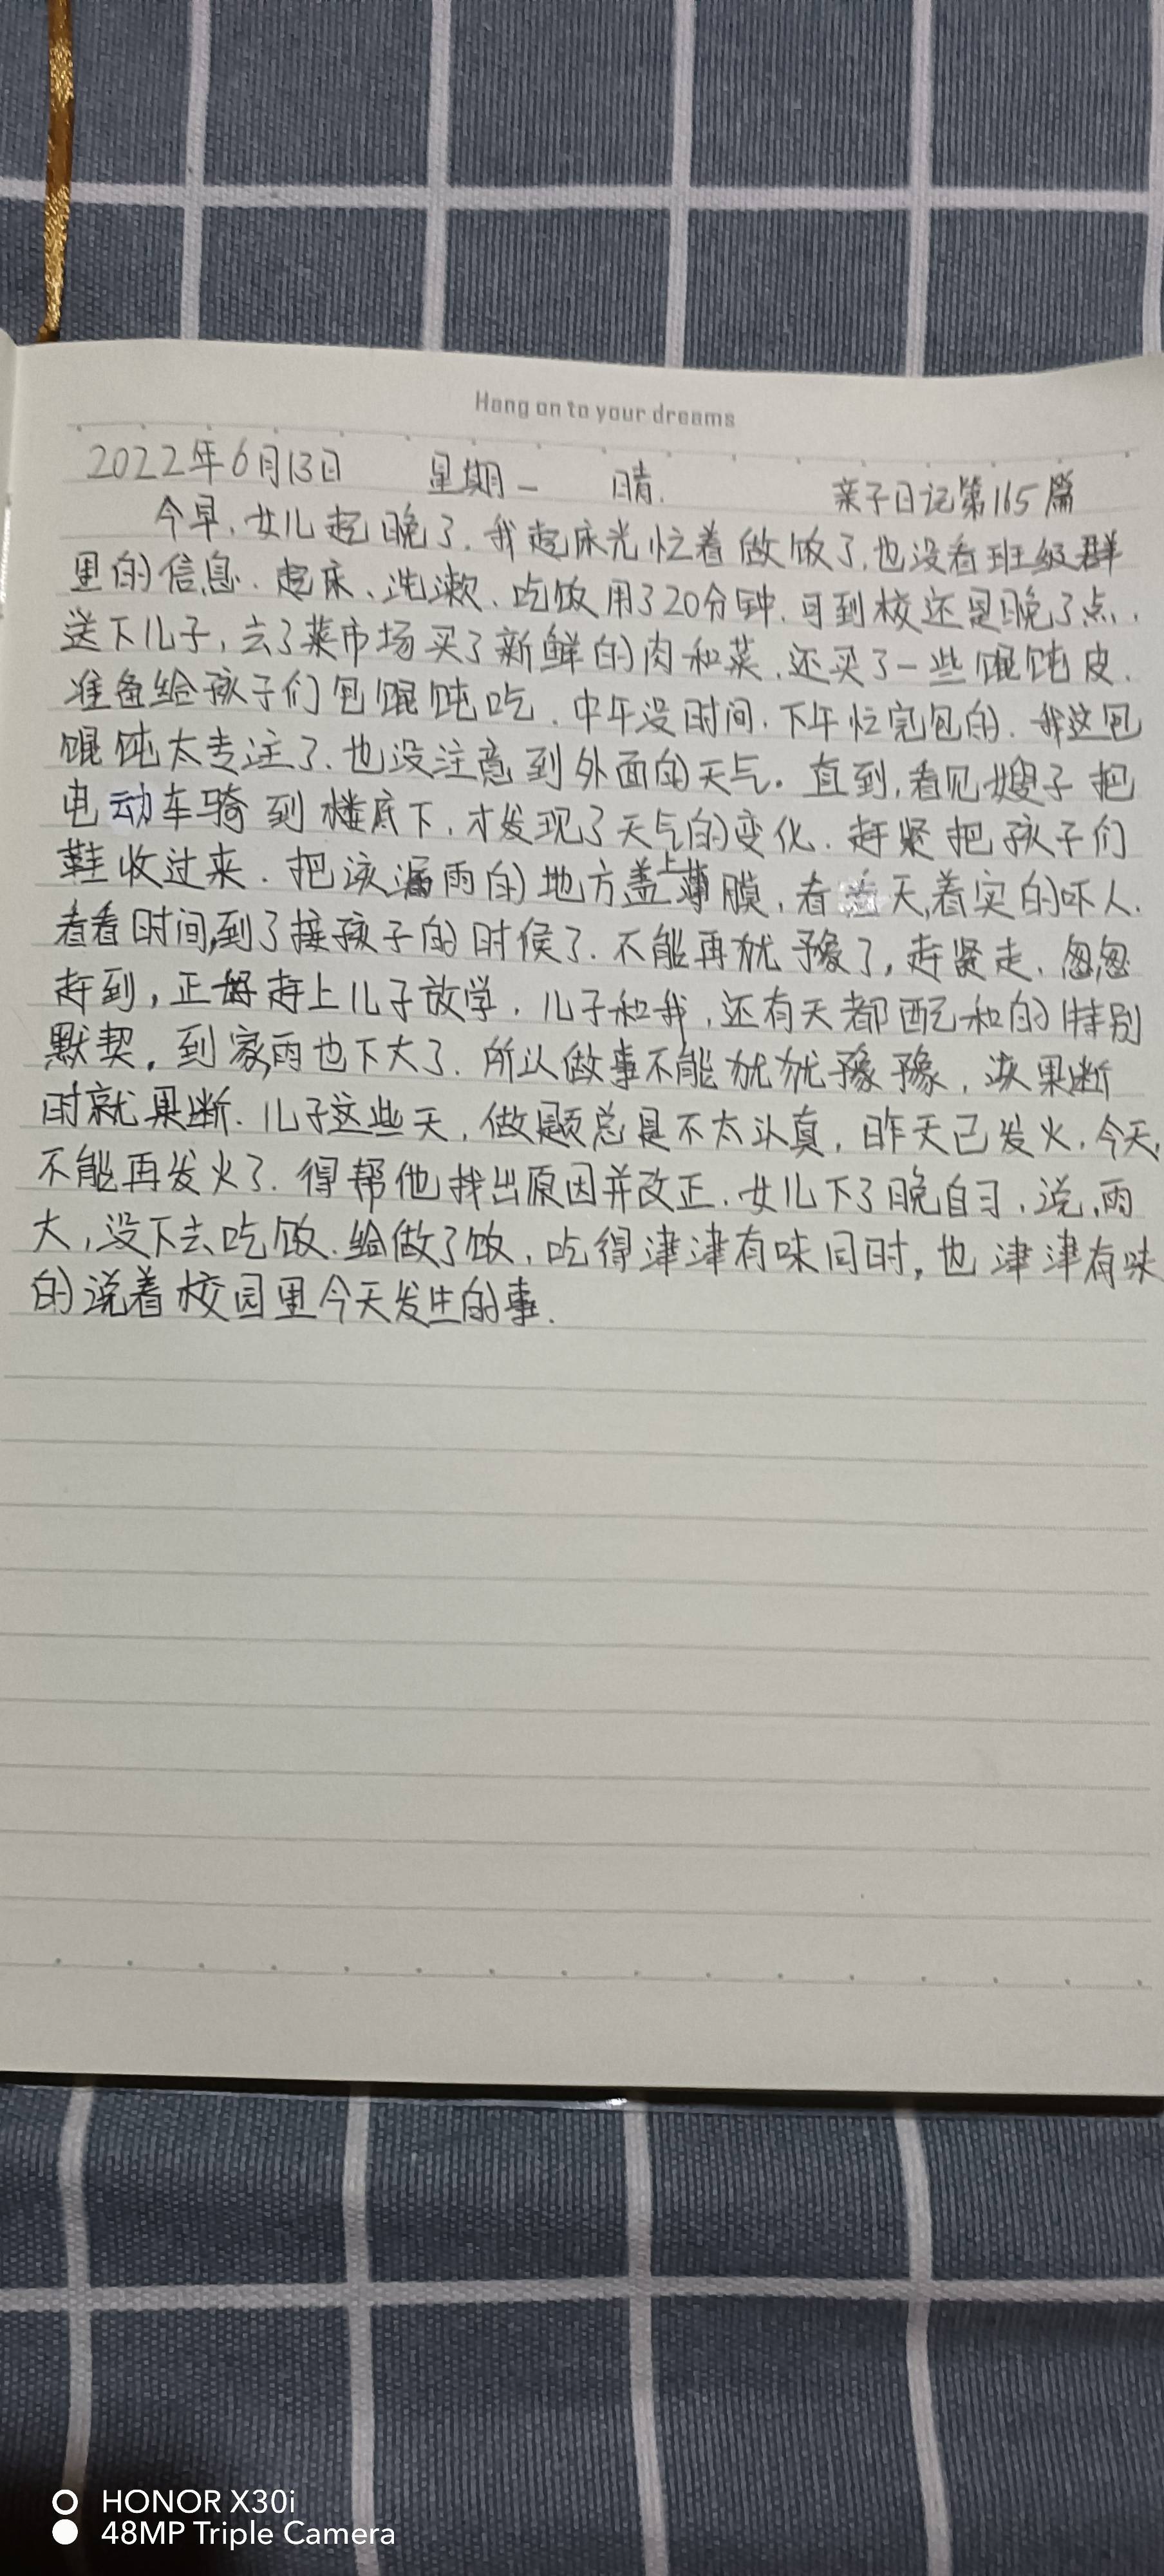 Hang on to your dreams
2022年6月13日 星期一 晴. 亲子日记第165篇
今早,女儿起晚了.我起床光忙着做饭了,也没看班级群
里的信息.起床、洗漱、吃饭用了20分钟,可到校还是晚了点.
送下儿子,去了菜市场买了新鲜的肉和菜,还买了一些馄饨皮.
准备给孩子们包馄饨吃.中午没时间.下午忙完包的.我这包
馄饨太专注了.也没注意到外面的天气。直到,看见嫂子把
电动车骑到楼底下,才发现了天气的变化.赶紧把孩子们
鞋收过来.把该漏雨的地方盖上薄膜,看 天,着实的吓人.
看看时间,到了接孩子的时候了.不能再犹豫了,赶紧走.匆匆
赶到,正好赶上儿子放学.儿子和我,还有天都配和的特别
默契。到家,雨也下大了.所以做事不能犹犹豫豫,该果断
时就果断.儿子这些天,做题总是不太认真,昨天已发火.今天,
不能再发火了.得帮他找出原因并改正.女儿下了晚自习,说,雨
大,没下去吃饭.给做了饭,吃得津津有味同时,也津津有味
的说着校园里今天发生的事.
HONOR X30i
48MP Triple Camera